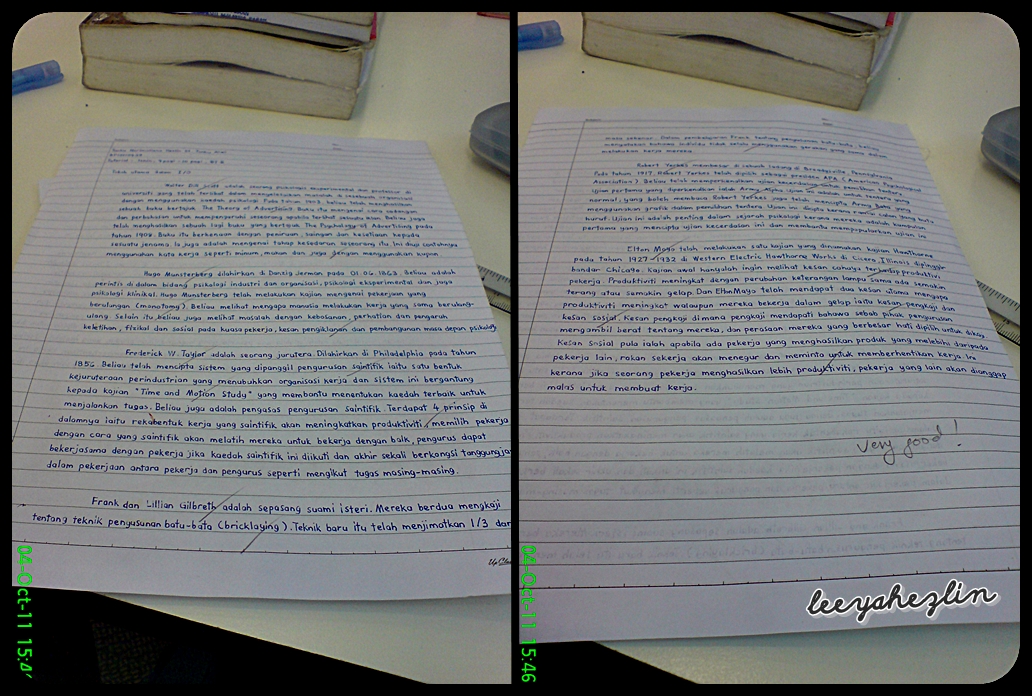 Walter Dill Scott adalah seorang psikologi eksperimental dan profesor di
universiti yang telah terlibat dalam
dengan menggunakan kaedah psikologi. Pada tahun 1903, beliau telah menghasilkan
sebuah buku bertajuk The Theory of Advertising. Buku itu mengenai cara
dan perbahasan untuk mempengaruhi seseorang apabila terlibat Beliau juga
telah menghasilkan sebuah lagi buku yang bertajuk The Psychology of Advertising pada
tahun 1908. Buku itu berkenaan dengan peniruan, saingan dan kesetiaan kepada
sesuatu jenama. Ia juga adalah mengenai tahap kesedaran seseorang itu. Ini diuji contohnya
menggunakan kata kerja seperti minum, mahan dan juga dengan menggunakan kupon.
Hugo Munsterberg dilahirkan di Danzig Jerman pada 01.06.1863. Beliau adalah
perintis di dalam bidang psikologi industri dan organisasi, psikologi eksperimental dan juga
psikologi klinikal. Hugo Munsterberg telah melakukan kajian mengenai pekerjaan yang
berulangan (monotony). Beliau melihat mengapa manusia melakukan kerja yang sama berulang-
ulang. Selain itu, beliau juga melihat masalah dengan kebosanan, perhatian dan pengaruh
keletihan, fizikal dan sosial pada kuasa pekerja, kesan pengiklanan dan pembangunan masa depan psikologi
Frederick W. Taylor adalah seorang jurutera. Dilahirkan di Philadelphia pada tahun
1856. Beliau telah mencipta sistem yang dipanggil pengurusan saintifik iaitu satu bentuk
kejuruteraan perindustrian yang menubuhkan organisasi kerja dan sistem ini bergantung
kepada kajian "Time and Motion Study" yang membantu menentukan kaedah terbaik untuk
menjalankan tugas. Beliau juga adalah pengasas pengurusan saintifik. Terdapat 4 prinsip di
dalamnya iaitu rekabentuk kerja yang saintifik akan meningkatkan produktiviti, memilih pekerja
dengan cara yang saintifik akan melatih mereka untuk bekerja dengan baik, pengurus dapat
bekerjasama dengan pekerja jika kaedah saintifik ini diikuti dan akhir sekali berkongsi tanggungja
dalam pekerjaan antara pekerja dan pengurus seperti mengikut tugas masing-masing.
Frank dan Lillian Gilbreth adalah sepasang suami isteri. Mereka berdua mengkaji
tentang teknik pengusunan batu-bata (bricklaying). Teknik baru itu telah menjimatkan 1/3 dar
04-Oct-11 15:4
masa sebenar. Dalam pembelajaran Frank tentang penyusunan batu-bata, beliau
mengatakan bahawa individu tidak selalu menggunakan gerakan yang sama dalam
melakukan kerja mereka.
Robert Yerkes membesar di sebuah ladang di Pennsylvania
Pada tahun 1917, Robert Yerkes telah dipilih sebagai presiden APA (American Psychological
Association). Beliau telah memperkenalkan ujian kecerdasan untuk pemilihan tentera
Ujian pertama yang diperkenalkan ialah Army Alpha. Ujian ini
normal, yang boleh membaca. Robert Yerkes juga telah mencipta Army Beta yang
menggunakan grafik dalam pemilihan tentera. Ujian ini dicipta kerana ramai calon yang buta
huruf. Ujian ini adalah penting dalam sejarah psikologi kerana mereka adalah kumpulan
pertama yang mencipta ujian kecerdasan ini dan membantu mempopularkan ujian ini.
Elton Mayo telah melakukan satu kajian yang dinamakan kajian Hawthorne
pada tahun 1927 - 1932 di Western Electric Hawthorne Works di Cicero, Illinois dipinggir
bandar Chicago. Kajian awal hanyalah ingin melihat kesan cahaya terhadap produktiviti
pekerja. Produktiviti meningkat dengan perubahan keterangan lampu sama ada semakin
terang atau semakin gelap. Dan Elton Mayo telah mendapat dua kesan dimana mengapa
produktiviti meningkat walaupun mereka bekerja dalam gelap iaitu kesan pengkaji dan
kesan sosial. Kesan pengkaji di mana pengkaji mendapati bahawa sebab pihak pengurusan
mengambil berat tentang mereka, dan perasaan mereka yang berbesar hati dipilih untuk dikaji.
Kesan sosial pula ialah apabila ada pekerja yang menghasilkan produk yang melebihi daripada
pekerja lain, rakan sekerja akan menegur dan meminta untuk memberhentikan kerja. Ini
kerana jika seorang pekerja menghasilkan lebih produktiviti, pekerja yang lain akan dianggap
malas untuk membuat kerja.
very good!
04-Oct-11 15:46
leeyahezlin